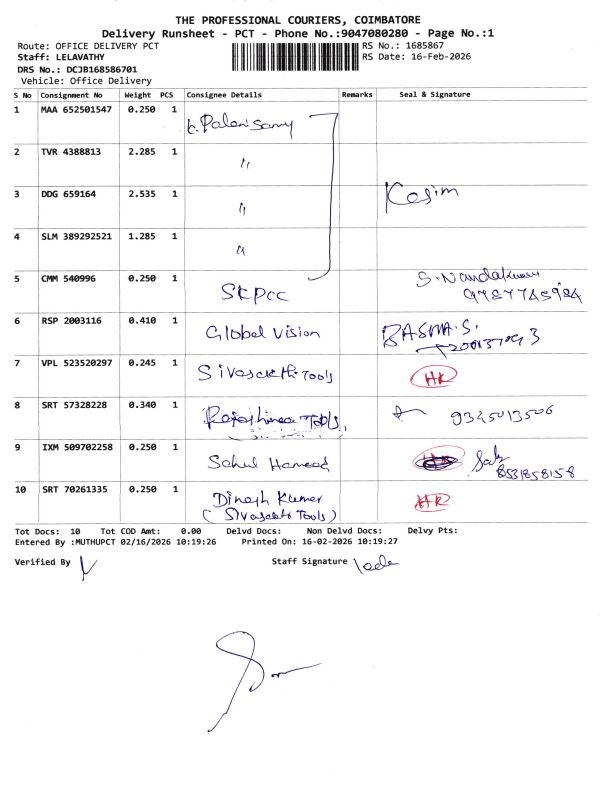 THE PROFESSIONAL COURIERS, COIMBATORE
Delivery Runsheet - PCT - Phone No.:9047080280 - Page No.:1
Route: OFFICE DELIVERY PCT RS No.: 1685867
Staff: LELAVATHY RS Date: 16-Feb-2026
DRS No.: DCJB168586701
Vehicle: Office Delivery
S No Consignment No Weight PCS Consignee Details Remarks Seal & Signature
1 MAA 652501547 0.250 1 Palanisamy
2 TVR 4388813 2.285 1 "
3 DDG 659164 2.535 1 " Kasim
4 SLM 389292521 1.285 1 "
5 CMM 540996 0.250 1 SKPCC S. Nandakumar
9787745984
6 RSP 2003116 0.410 1 Global Vision BASHA.S.
7 VPL 523520297 0.245 1 Sivasakthi Tools HR
8 SRT 57328228 0.340 1 Tools 9345013506
9 IXM 509702258 0.250 1 Sahul Hameed
8531858158
10 SRT 70261335 0.250 1 Dinesh Kumar HR
(Sivasakti Tools)
Tot Docs: 10 Tot COD Amt: 0.00 Delvd Docs: Non Delvd Docs: Delvy Pts:
Entered By :MUTHUPCT 02/16/2026 10:19:26 Printed On: 16-02-2026 10:19:27
Verified By Staff Signature